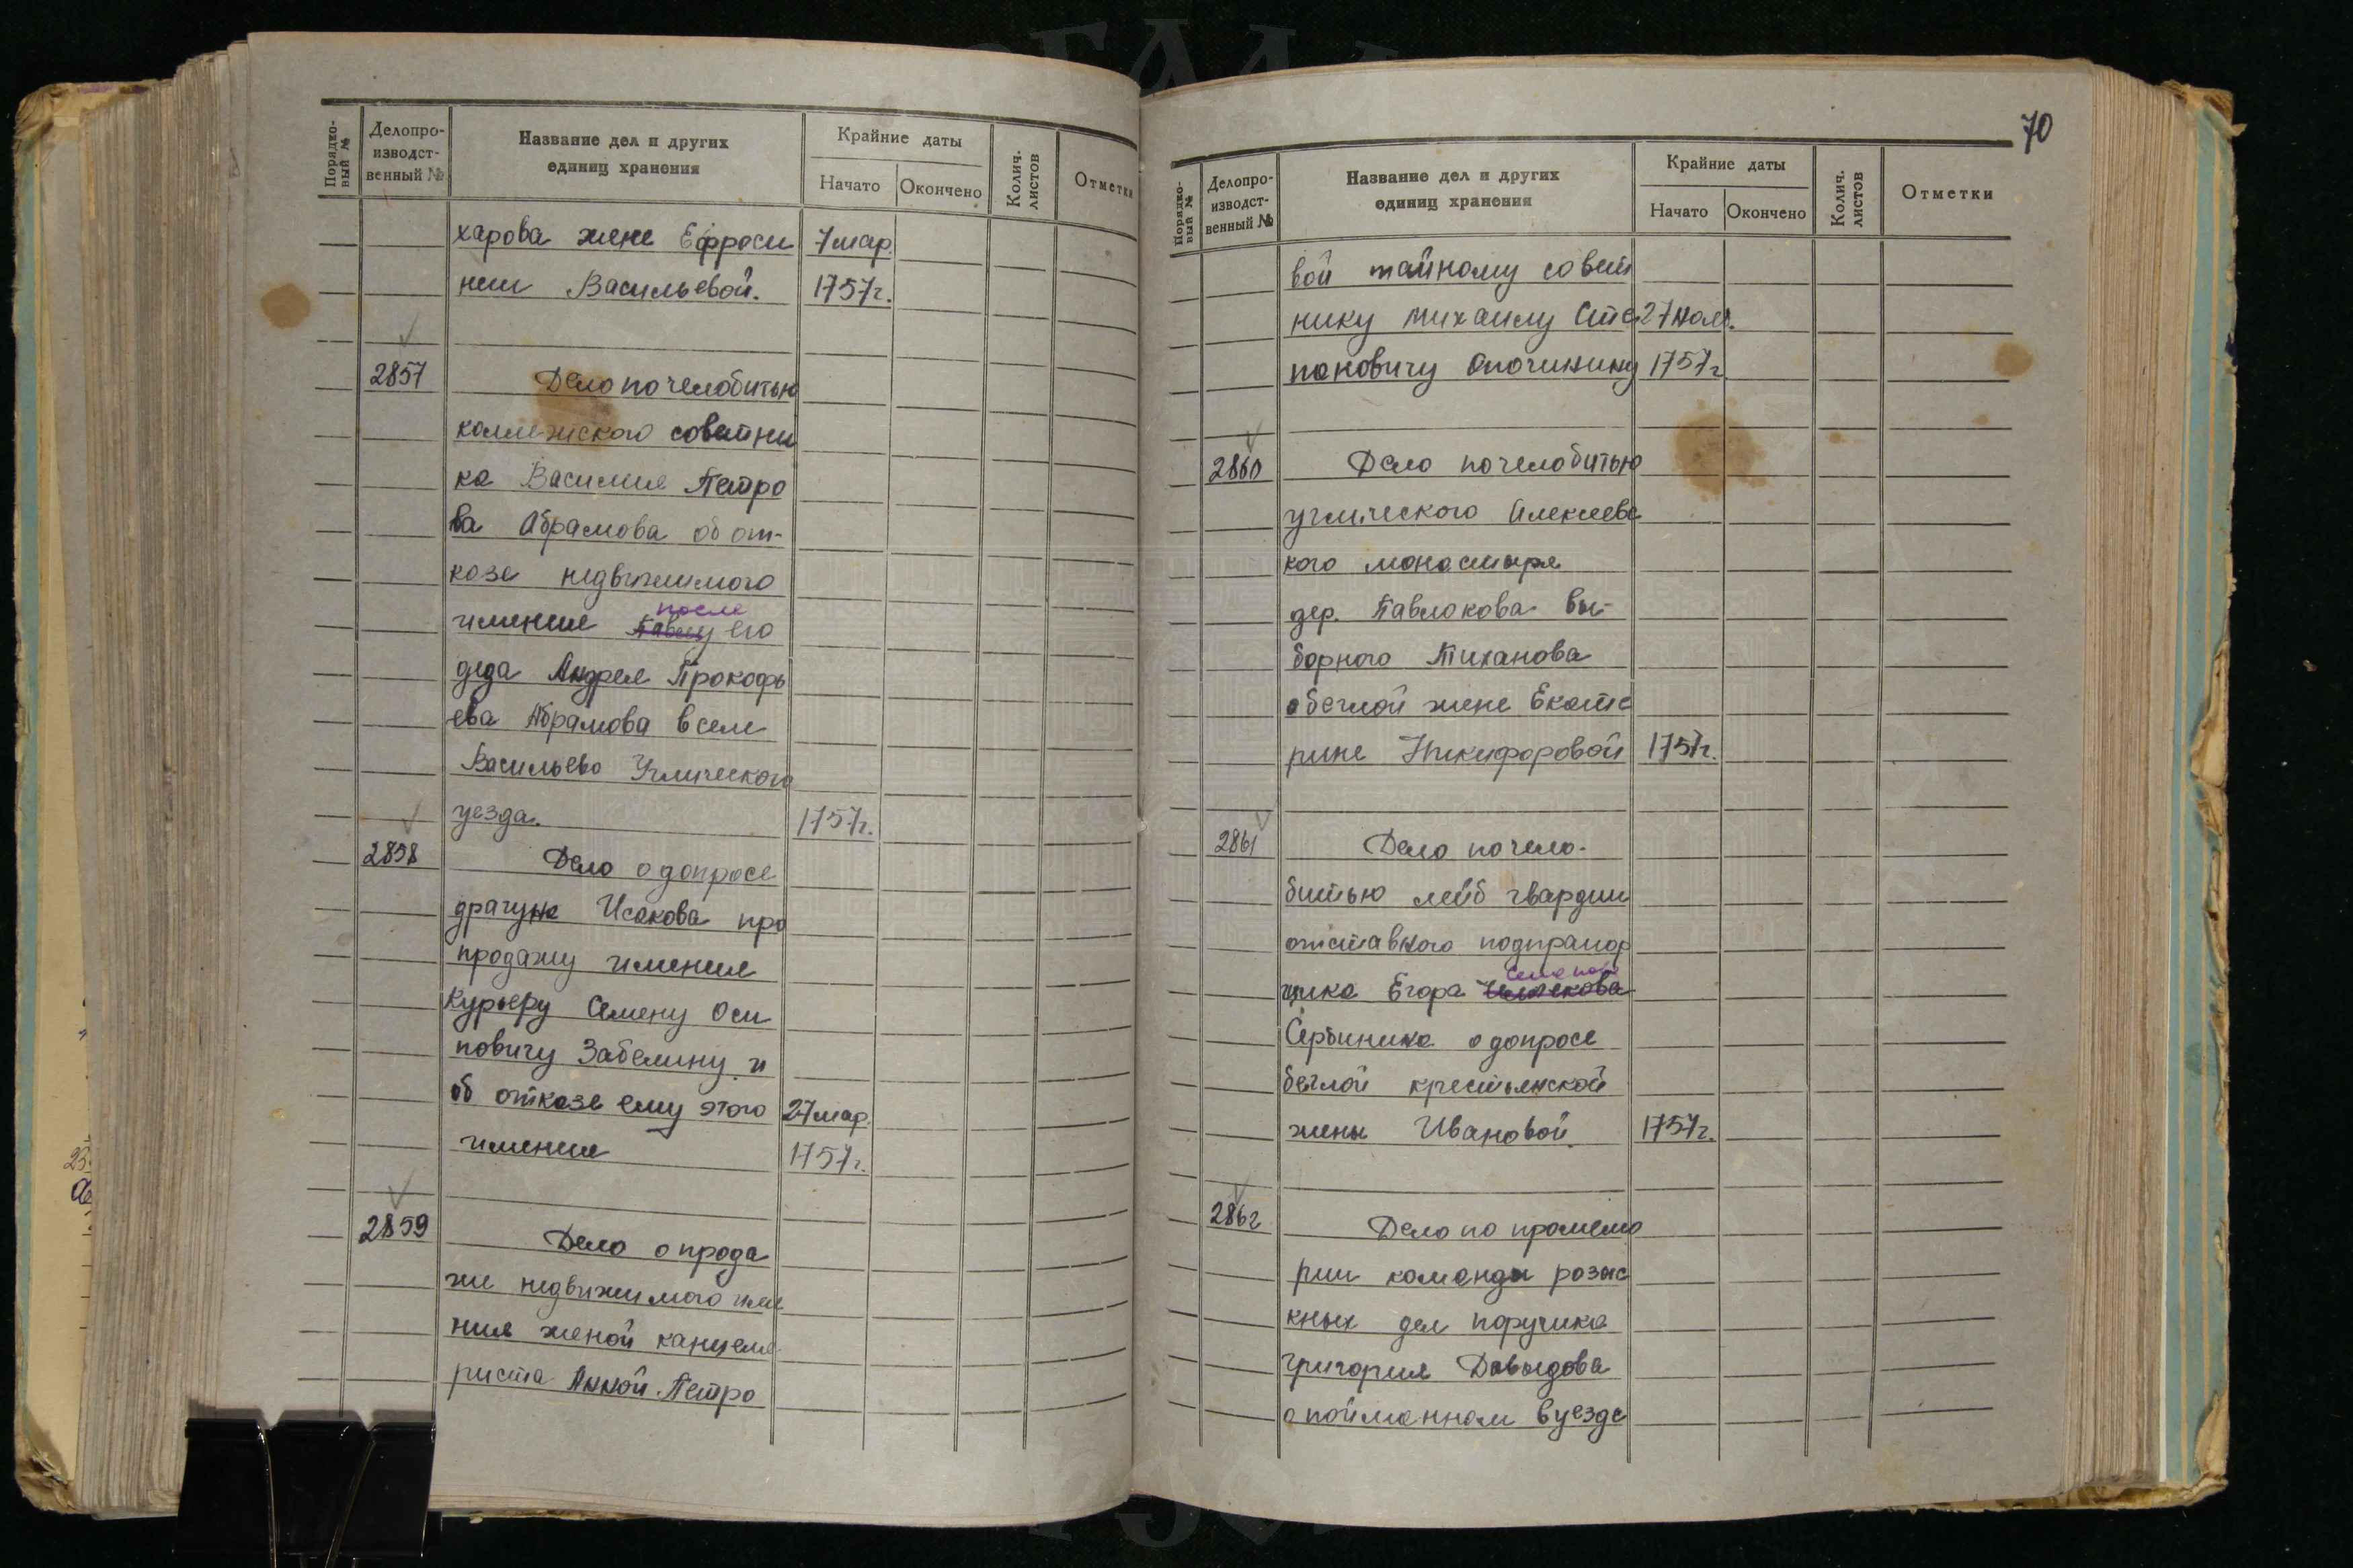 Порядко-
вый №
Делопро-
изводст-
венный №
Название дел и других
единиц хранения
Крайние даты
Начато
Окончено
Колич.
листов
Отметки
харова жене Ефроси 7 мар.
нии Васильевой. 1757г.
2857 Дело по челобитью
коллежского советни
ка Василия Петро
ва Абрамова об от-
казе недвижимого
после
имения Павлу его
деда Андрея Прокофь
ева Абрамова в селе
Васильево Угличского
уезда. 1757г.
2858 Дело о допросе
драгуна Исакова про
продажу имения
Курьеру Семену Оси
повичу Забелину и
об отказе ему этого 27 мар.
имения 1757г.
2859 Дело о прода
же недвижимого име
ния женой канцеля
риста Анной Петро
70
Порядко-
вый №
Делопро-
изводст-
венный №
Название дел и других
единиц хранения
Крайние даты
Начато
Окончено
Колич.
листов
Отметки
вой тайному совет
нику Михаилу Сте 27
пановичу Опочинину 1757г
2860 Дело по челобитью
угличского Алексеевс
кого монастыря
дер. Павлокова вы-
борного Тиханова
о беглой жене Екате
рине Никифоровой 1757г.
2861 Дело по чело-
битью лейб гвардии
отставного подпрапор
щика Егора
Сербинина о допросе
беглой крестьянской
жены Ивановой. 1757г.
2862 Дело по промемо
рии команды розыс
кных дел поручика
Григория Давыдова
о пойманном в уезде